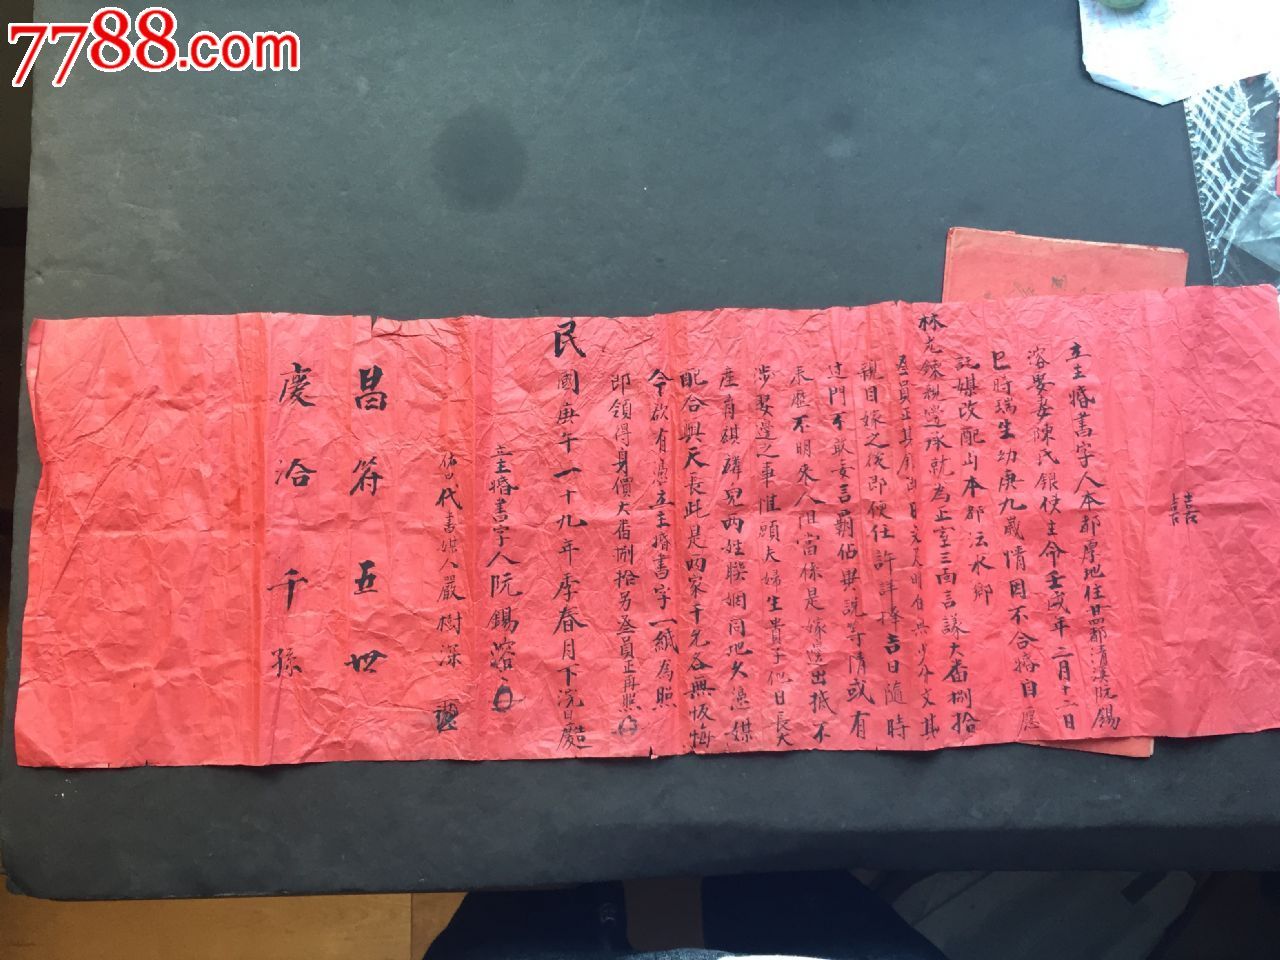 7788.com
囍
立主婚書字人本都厚地住廿四都清溪阮錫
溶娶妻陳氏銀使生命壬戌年二月十二日
巳時瑞生幼庚九歲情因不合將自愿
託媒改配山本都法水鄉
林 親邊承就為正室三面言議大番捌拾
員正其 即日交 明白無少分文其
親目嫁之後即便任許詳擇吉日隨時
过門不敢妄言霸佔異說等情或有
來歷不明來人 當係是嫁邊出抵不
涉娶邊之事惟願夫婦生貴子他日長大
產育麒麟兒兩姓聯姻同地久憑媒
配合與天長此是兩家千允各無恢悔
今欲有憑立主婚書字一紙為照
即領得身價大番捌拾另 員正再照
民國庚午一十九年季春月下浣日 造
立主婚書字人阮錫溶
代書媒人嚴樹深
昌符五世
慶洽千孫